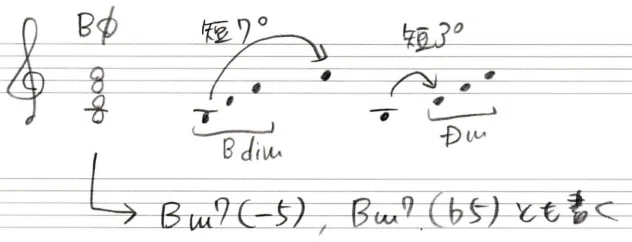 Bφ 短7° 短3°
Bdim Dm
Bm7(-5), Bm7(b5)とも書く